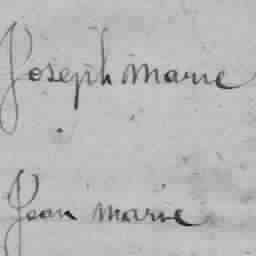 Joseph marie
Jean marie